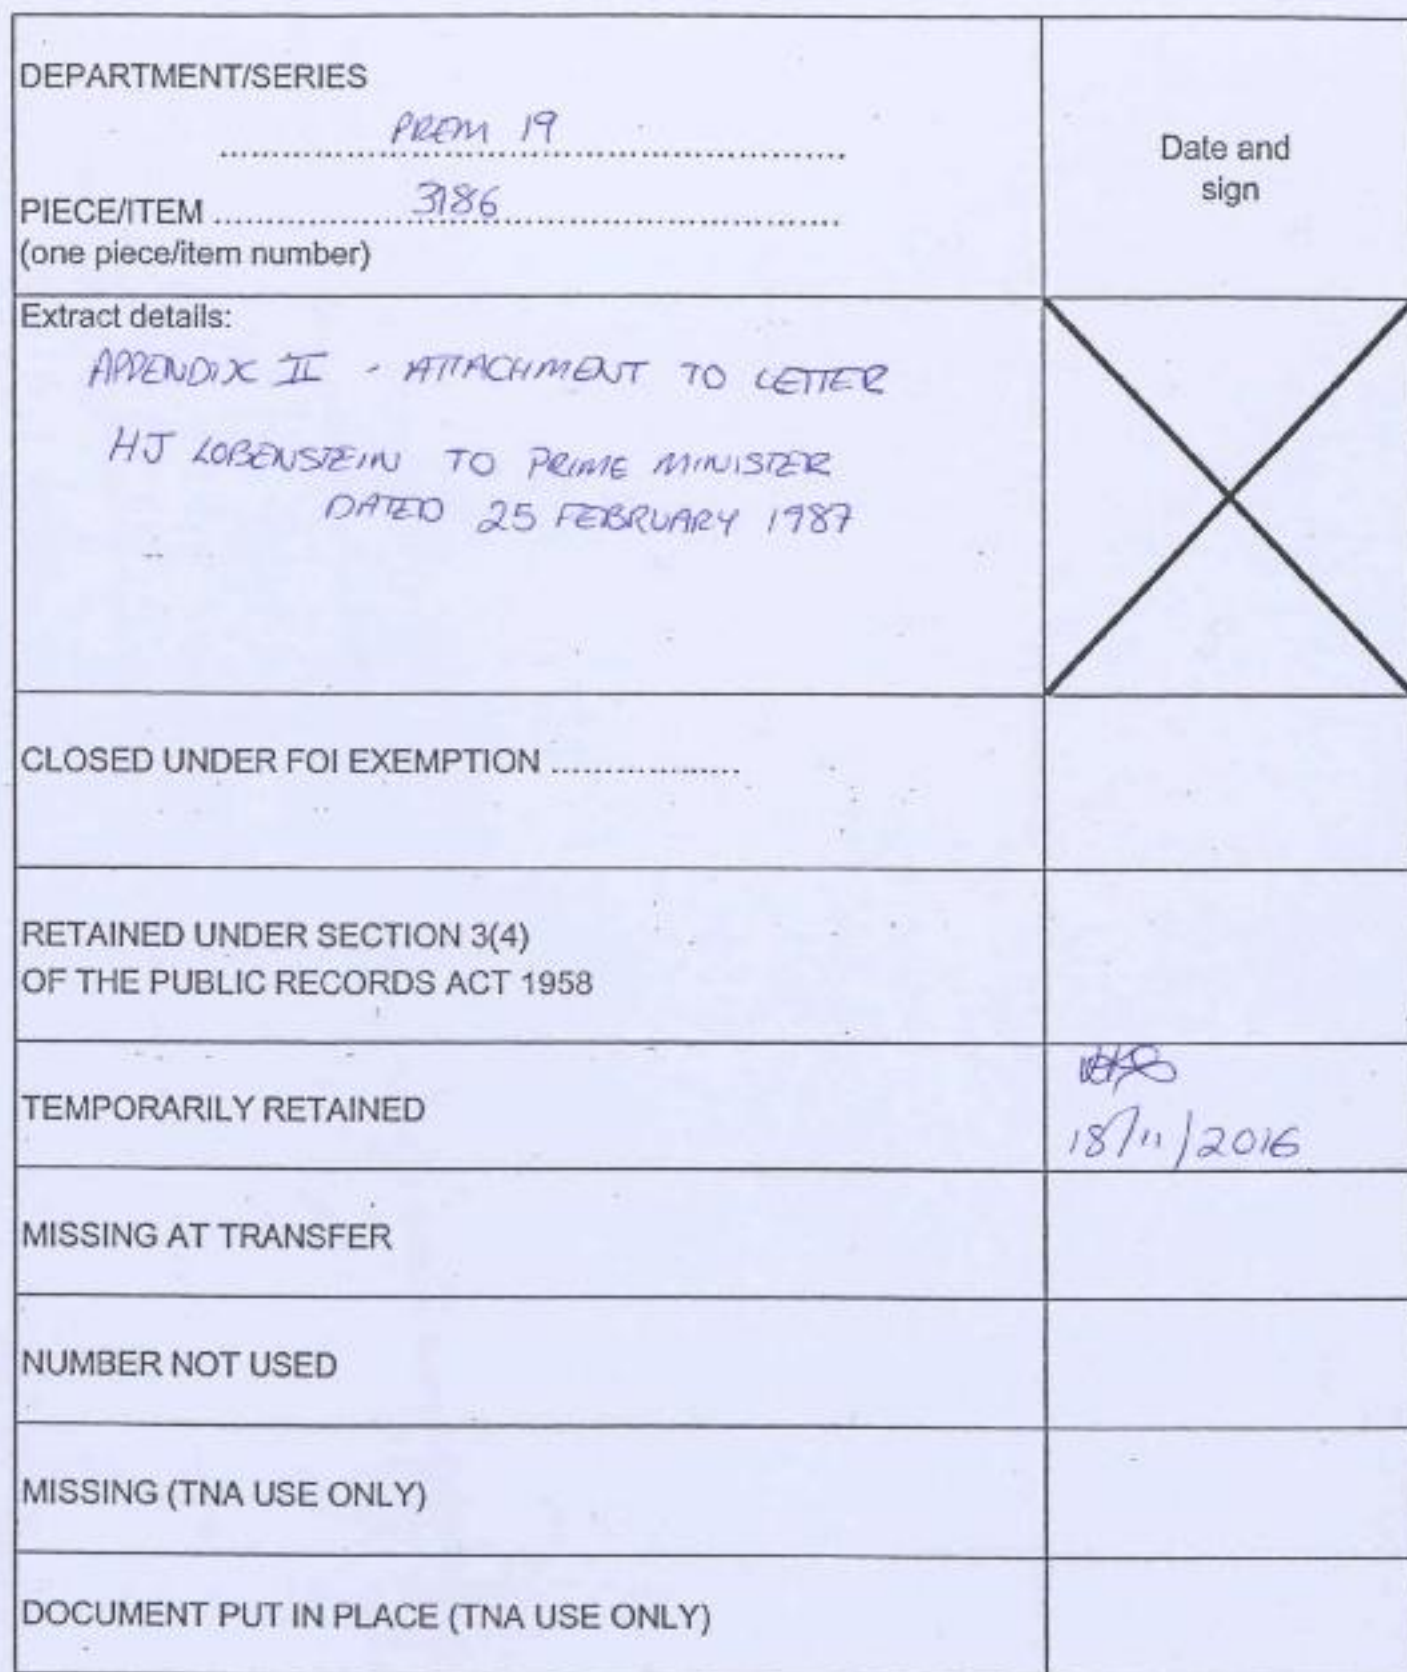 DEPARTMENT/SERIES
PREM 19
Date and
sign
PIECE/ITEM 3186
(one piece/item number)
Extract details:
APPENDIX II - ATTACHMENT TO LETTER
HJ LOBENSTEIN TO PRIME MINISTER
DATED 25 FEBRUARY 1987
CLOSED UNDER FOI EXEMPTION ..................
RETAINED UNDER SECTION 3(4)
OF THE PUBLIC RECORDS ACT 1958
TEMPORARILY RETAINED
18/11/2016
MISSING AT TRANSFER
NUMBER NOT USED
MISSING (TNA USE ONLY)
DOCUMENT PUT IN PLACE (TNA USE ONLY)